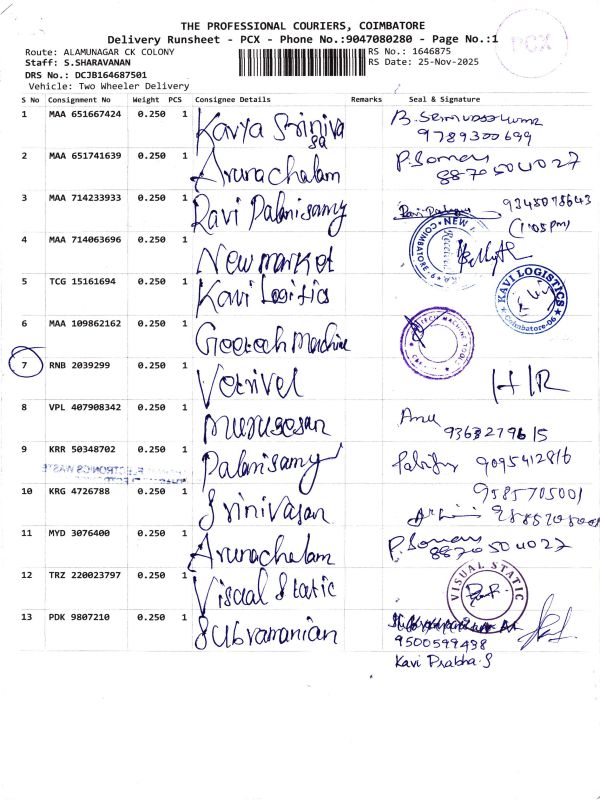 THE PROFESSIONAL COURIERS, COIMBATORE
Delivery Runsheet - PCX - Phone No.:9047080280 - Page No.:1
PCX
Route: ALAMUNAGAR CK COLONY
RS No.: 1646875
Staff: S.SHARAVANAN
RS Date: 25-Nov-2025
DRS No.: DCJB164687501
Vehicle: Two Wheeler Delivery
S No Consignment No Weight PCS Consignee Details Remarks Seal & Signature
1 MAA 651667424 0.250 1 Kavya Sriniva
sa
9789300699
2 MAA 651741639 0.250 1 Arunachalam P.Soman
8870504027
3 MAA 714233933 0.250 1 Ravi Palanisamy 9345078643
(1:05pm)
4 MAA 714063696 0.250 1 New market
5 TCG 15161694 0.250 1 Kavi Logitics KAVI LOGISTICS
Coimbatore-06
6 MAA 109862162 0.250 1 Geetech Machine
7 RNB 2039299 0.250 1 Vetrivel HR
8 VPL 407908342 0.250 1 Murugesan Anu
9363279615
9 KRR 50348702 0.250 1 Palanisamy 9095412816
ELECTRONICS WASTE
10 KRG 4726788 0.250 1 Srinivasan 9585705001
11 MYD 3076400 0.250 1 Arunachalam P.Soman
8870504027
12 TRZ 220023797 0.250 1 Visual Static VISUAL STATIC
13 PDK 9807210 0.250 1 Subramanian
9500599438
Kavi Prabha.S